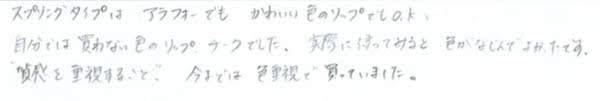 スプリングタイプは アラフォーでも かわいい色のリップでもO.K、
自分では買わない色のリップ、チークでした、実際に使ってみると 色がなじんでよかったです。
"質感を重視すること"、今までは 色重視で 買っていました。